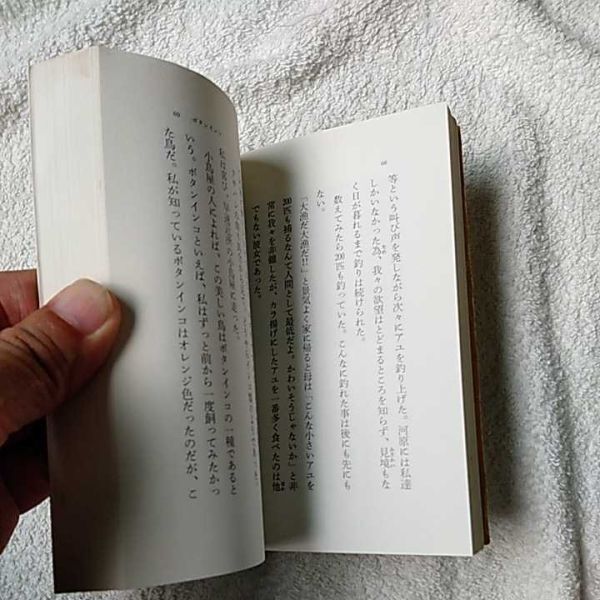 68
等という叫び声を発しながら次々にアユを釣り上げた。河原には私達
しかいなかった為、我々の欲望はとどまるところを知らず、見境もな
く日が暮れるまで釣り続けられた。
数えてみたら200匹も釣っていた。こんなに釣れた事は後にも先にも
ない。
「大漁だ大漁だ!!」と景気よく家に帰ると母は「こんな小さいアユを
200匹も捕るなんて人間として最低だよ。かわいそうじゃないか」と非
常に我々を非難したが、カラ揚げにしたアユを一番多く食べたのは他
でもない彼女であった。
69 ボタンインコ
私は喜び、早速近所の小鳥屋に走った。
小鳥屋の人によれば、この美しい鳥はボタンインコの一種であると
いう。ボタンインコといえば、私はずっと前から一度飼ってみたかっ
た鳥だ。私が知っているボタンインコはオレンジ色だったのだが、こ